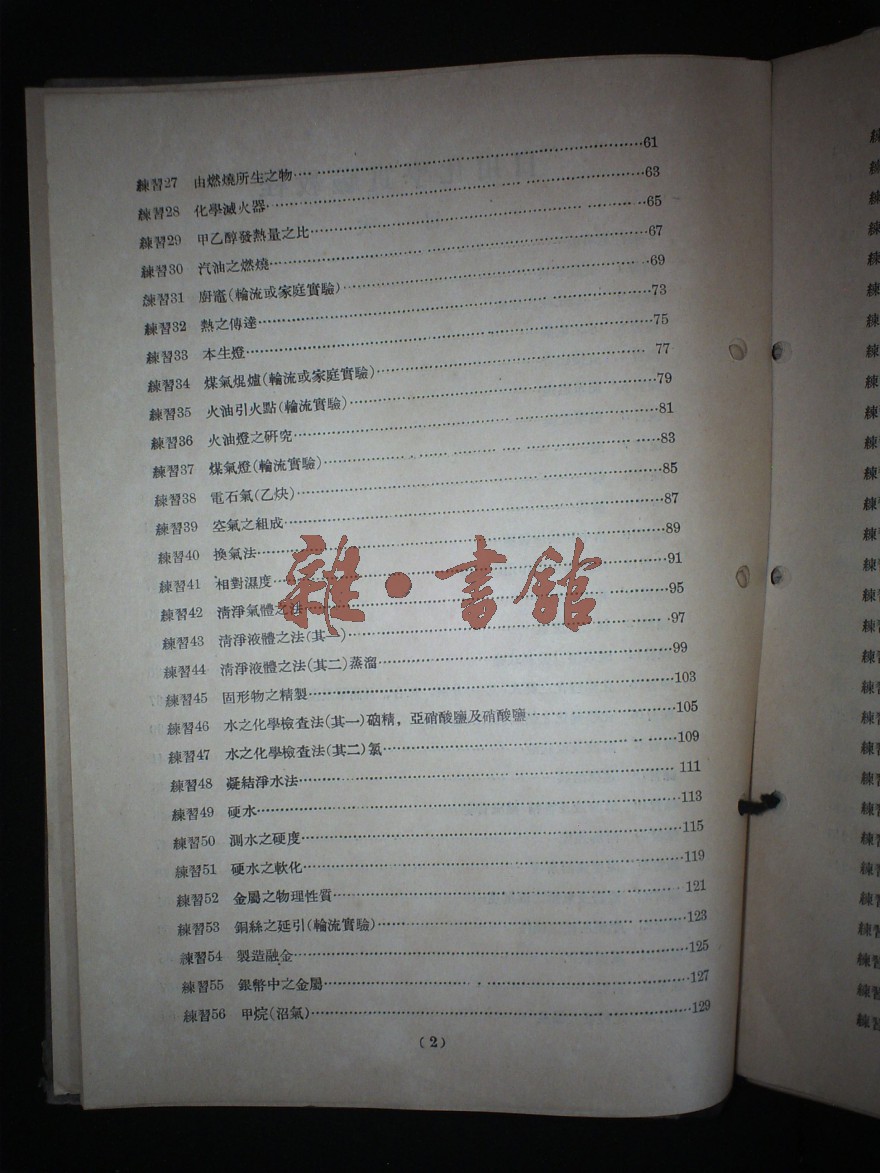 練習27 由燃燒所生之物 61
練習28 化學滅火器 63
練習29 甲乙醇發熱量之比 65
練習30 汽油之燃燒 67
練習31 廚竈(輪流或家庭實驗) 69
練習32 熱之傳達 73
練習33 本生燈 75
練習34 煤氣焜爐(輪流或家庭實驗) 77
練習35 火油引火點(輪流實驗) 79
練習36 火油燈之研究 81
練習37 煤氣燈(輪流實驗) 83
練習38 電石氣(乙炔) 85
練習39 空氣之組成 87
練習40 換氣法 89
練習41 相對濕度 91
練習42 清淨氣體之法 95
練習43 清淨液體之法(其一) 97
練習44 清淨液體之法(其二)蒸溜 99
練習45 固形物之精製 103
練習46 水之化學檢查法(其一)硇精，亞硝酸鹽及硝酸鹽 105
練習47 水之化學檢查法(其二)氯 109
練習48 凝結淨水法 111
練習49 硬水 113
練習50 測水之硬度 115
練習51 硬水之軟化 119
練習52 金屬之物理性質 121
練習53 銅絲之延引(輪流實驗) 123
練習54 製造融金 125
練習55 銀幣中之金屬 127
練習56 甲烷(沼氣) 129
(2)
雜·書館